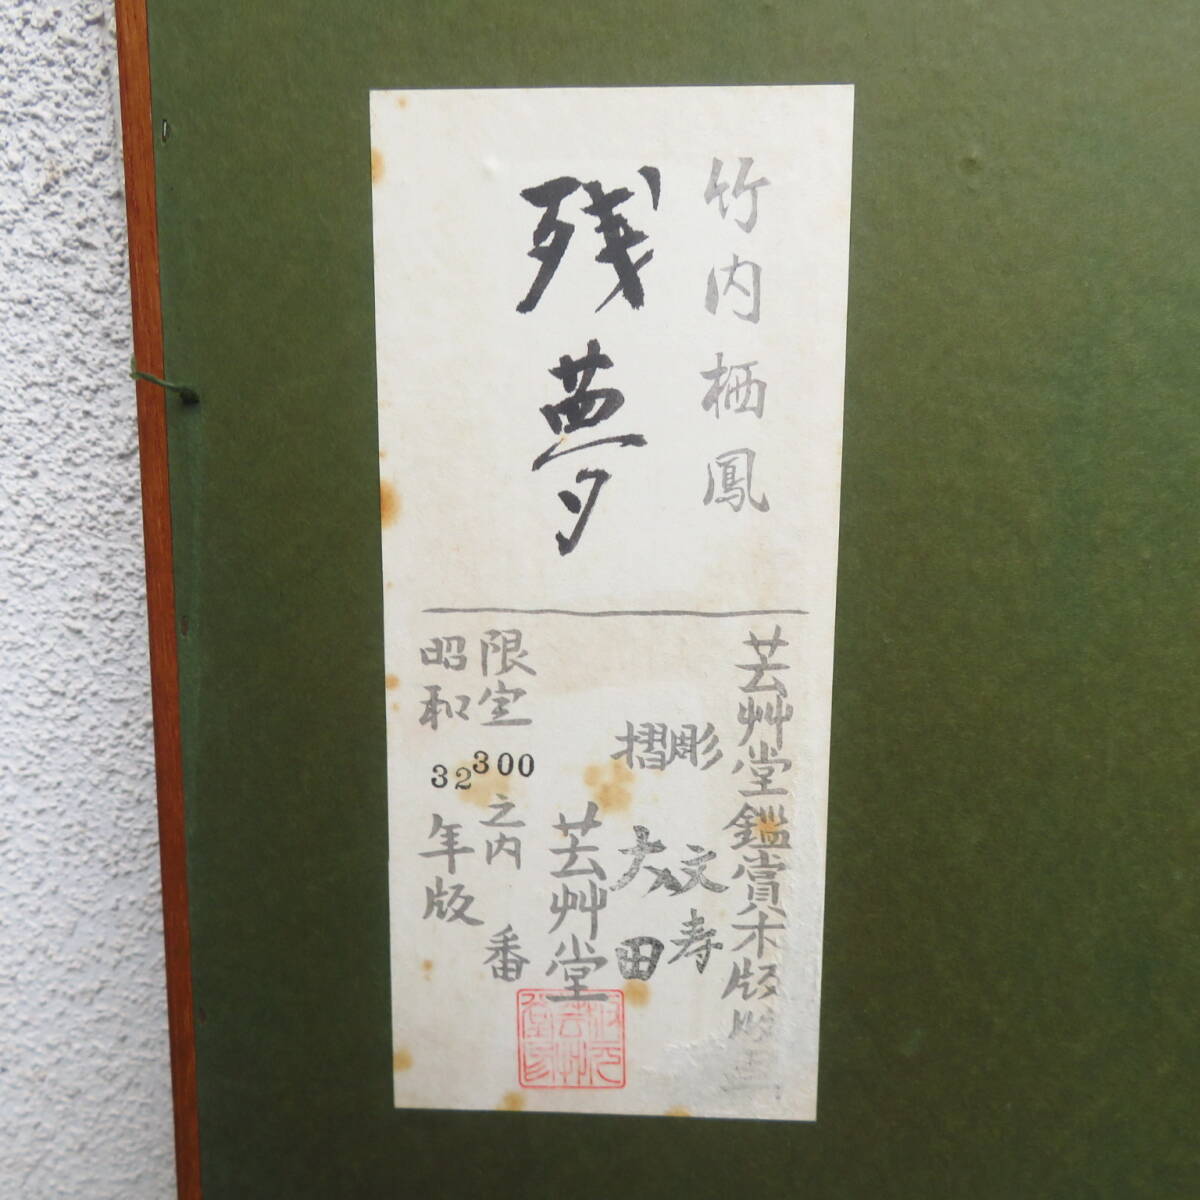 竹内栖鳳
残夢
芸艸堂鑑賞木版版画
彫 文寿
摺 大田
芸艸堂
限定300之内 番
昭和32年版